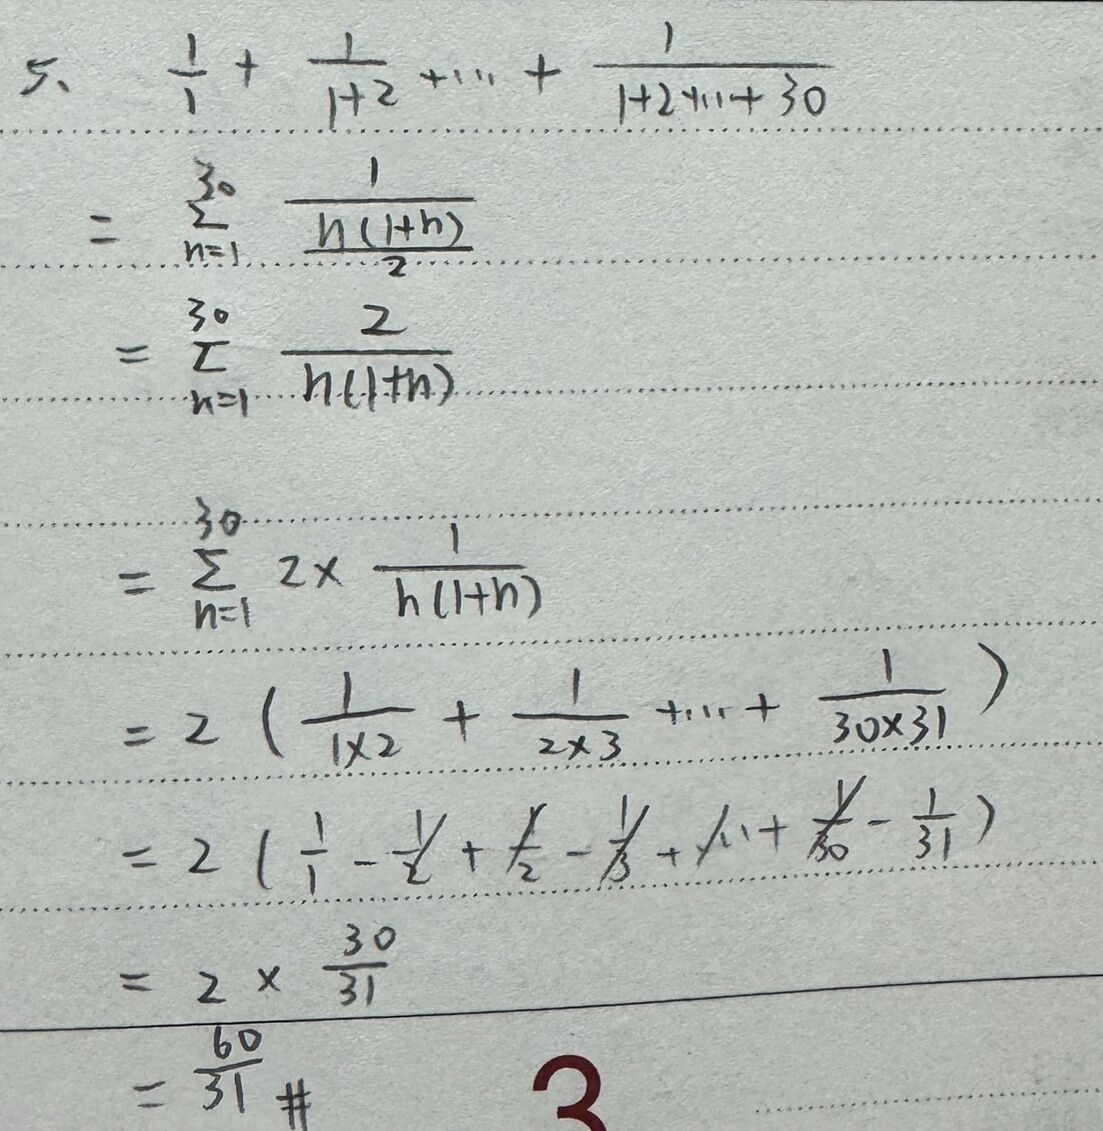 5. 1/1 + 1/(1+2) + ... + 1/(1+2+...+30)
= 30 Σ n=1 1/(n(1+n)/2)
= 30 Σ n=1 2/(n(1+n))
= 30 Σ n=1 2 × 1/(n(1+n))
= 2 ( 1/(1×2) + 1/(2×3) + ... + 1/(30×31) )
= 2 ( 1/1 - 1/2 + 1/2 - 1/3 + ... + 1/30 - 1/31 )
= 2 × 30/31
= 60/31 #
3